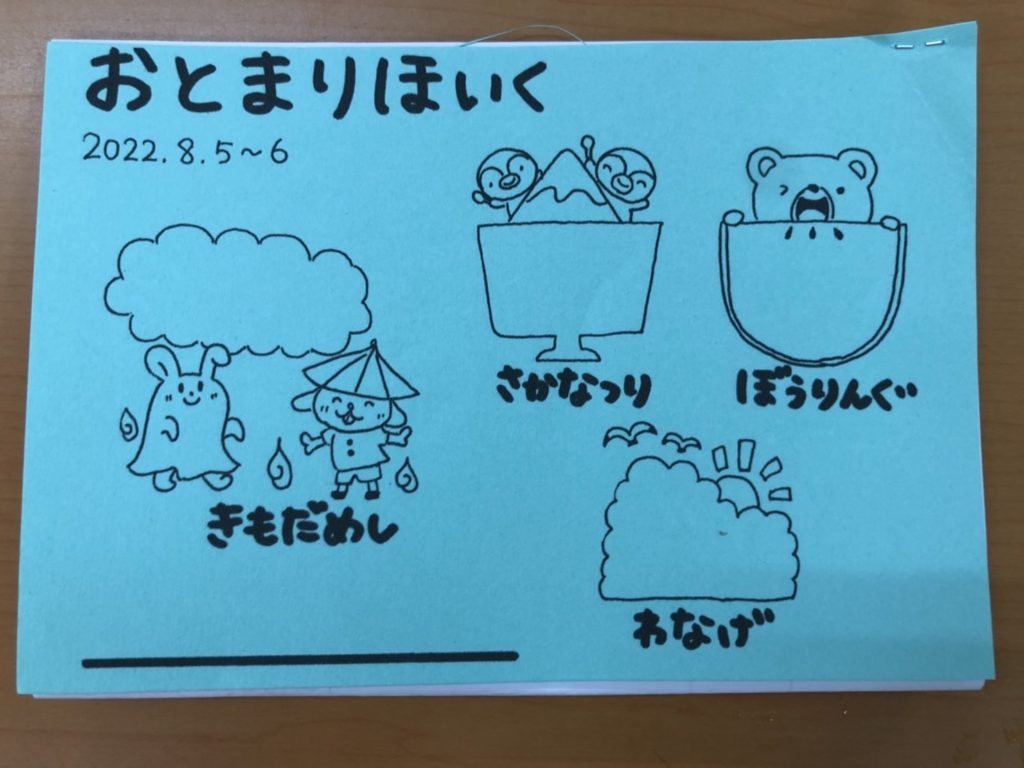 おとまりほいく
2022.8.5~6
さかなつり
ぼうりんぐ
きもだめし
わなげ